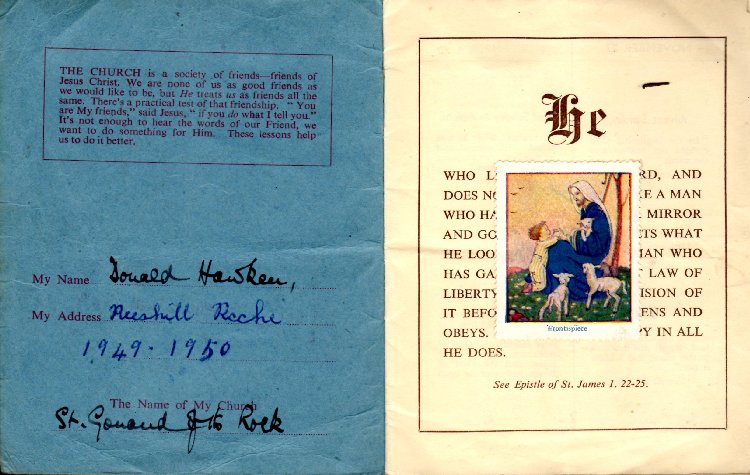 THE CHURCH is a society of friends—friends of
Jesus Christ. We are none of us as good friends as
we would like to be, but He treats us as friends all the
same. There's a practical test of that friendship. "You
are My friends," said Jesus, "if you do what I tell you."
It's not enough to hear the words of our Friend, we
want to do something for Him. These lessons help
us to do it better.
My Name Donald Hawken,
My Address Roche
1949-1950
The Name of My Church
St. Gonand of the Rock
He
WHO L RD, AND
DOES NO KE A MAN
WHO HA MIRROR
AND GO CTS WHAT
HE LOO MAN WHO
HAS GA LAW OF
LIBERTY ISION OF
IT BEFO ENS AND
OBEYS. PY IN ALL
HE DOES.
Frontispiece
See Epistle of St. James 1. 22-25.